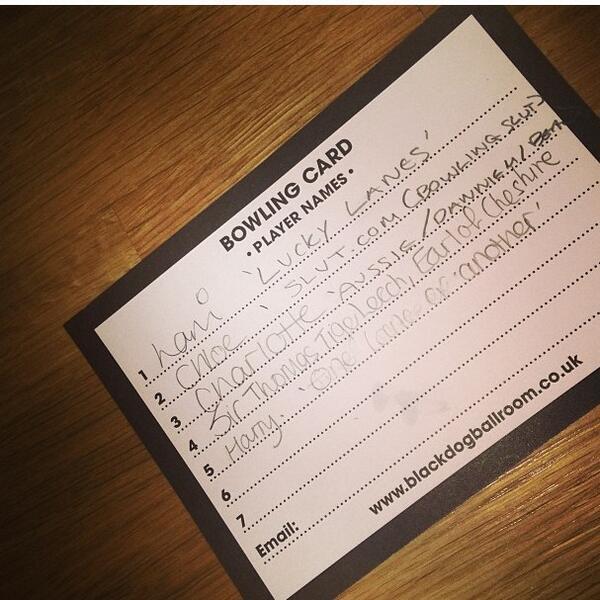 BOWLING CARD
• PLAYER NAMES •
1 Lani 'LUCKY LANES'
2 Chloe 'SLUT.COM (BOWLING SLUT)
3 Charlotte 'AUSSIE/DAWNIE H/
4 Sir Thomas Leech, Earl of Cheshire
5 Harry. 'One lane or another'
6
7
Email:
www.blackdogballroom.co.uk